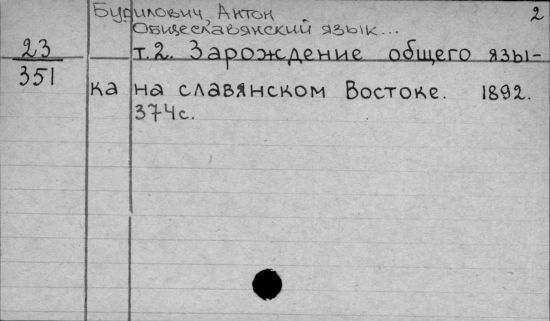 Будилович, Антон 2
Общеславянский язык...
23
351
т.2. Зарождение общего язы-
ка на славянском Востоке. 1892.
374с.